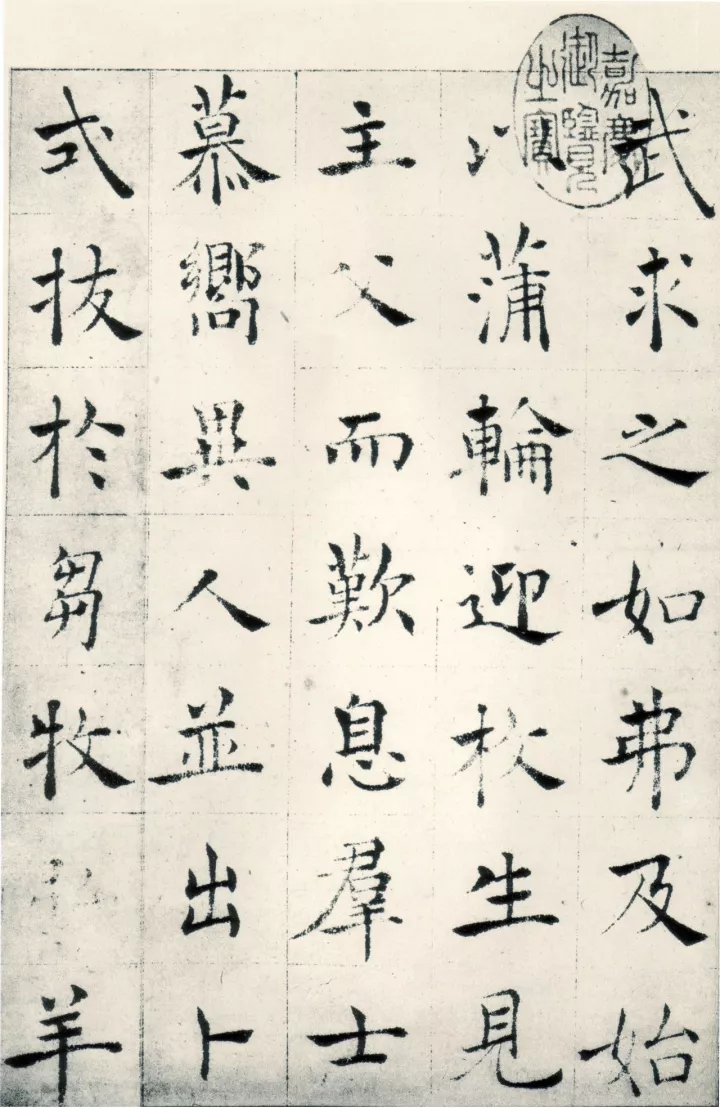 嘉慶御覽之寶
武求之如弗及始
以蒲輪迎枚生見
主父而歎息羣士
慕嚮異人並出卜
式拔於芻牧弘羊